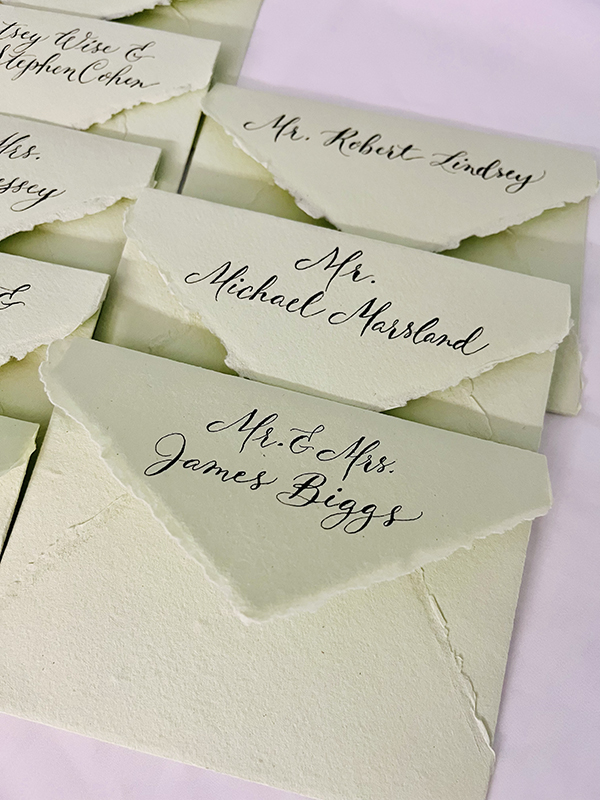 Wise &
Stephen Cohen
Mrs.
&
Mr. Robert Lindsey
Mr.
Michael Marsland
Mr. & Mrs.
James Biggs